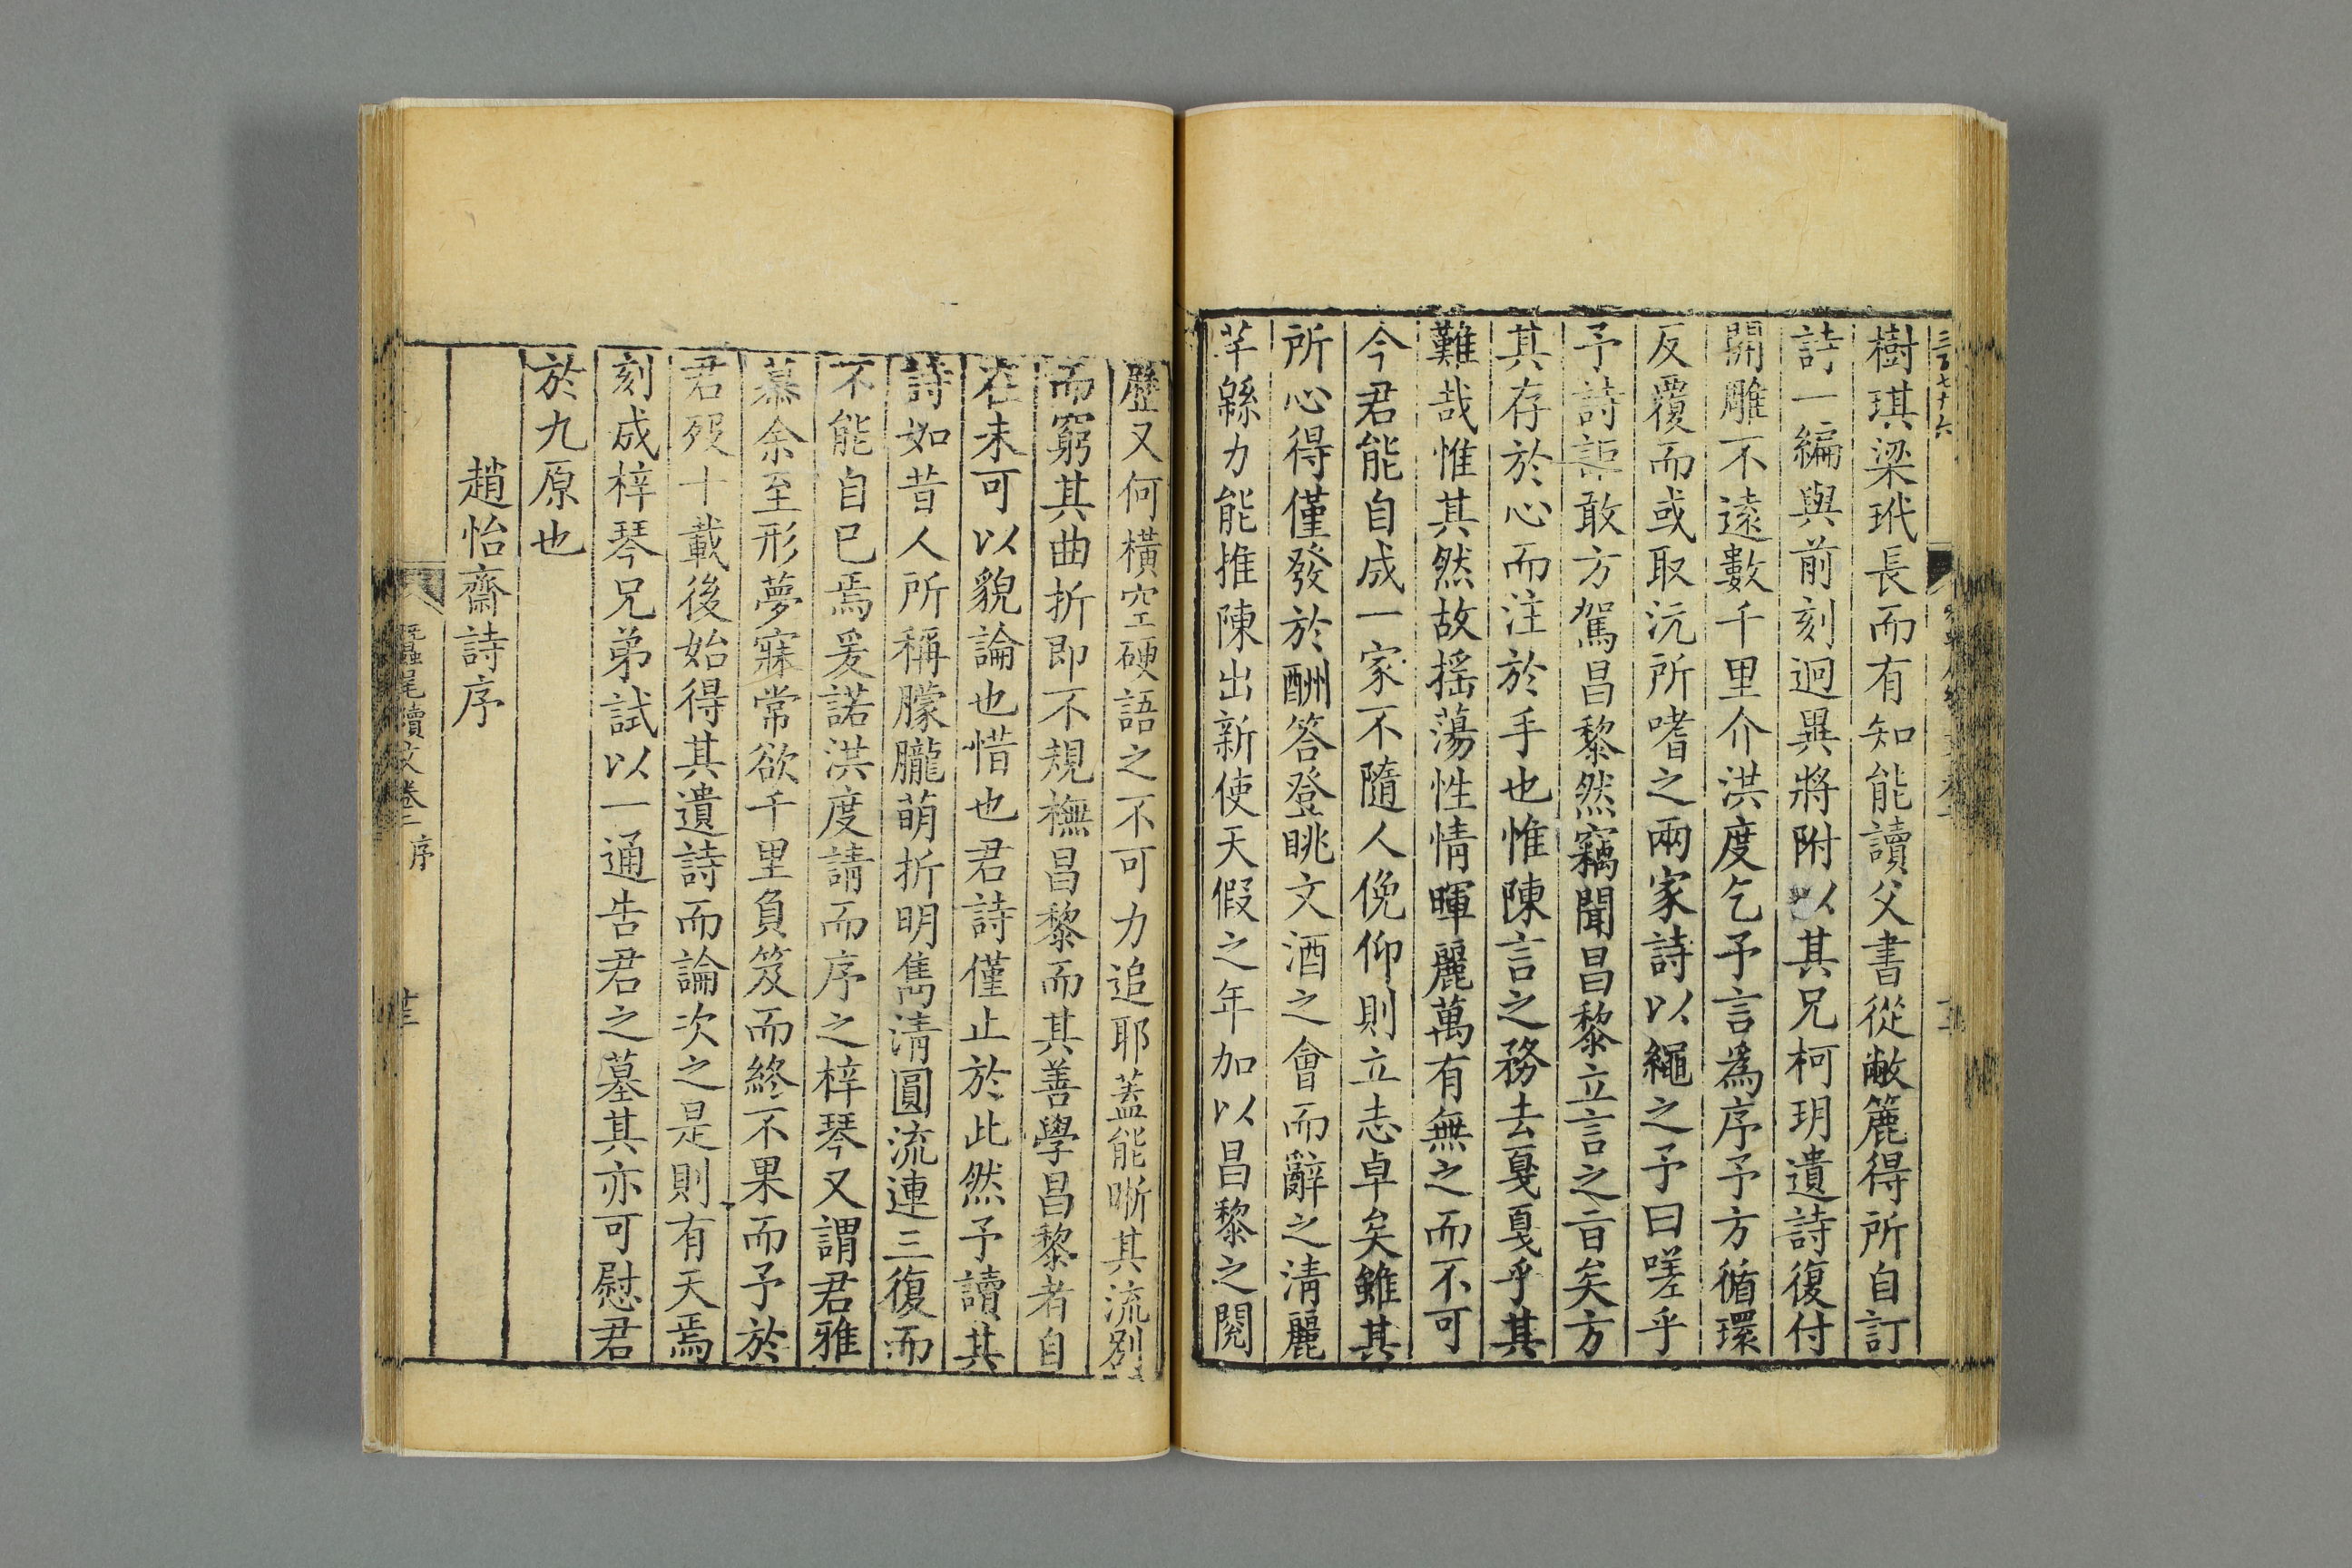 三百七十六
樹琪梁玳長而有知能讀父書從敝簏得所自訂
詩一編與前刻迥異將附以其兄柯玥遺詩復付
開雕不遠數千里介洪度乞予言為序予方循環
反覆而或取沅所嗜之兩家詩以繩之予曰嗟乎
予詩詎敢方駕昌黎然竊聞昌黎立言之旨矣方
其存於心而注於手也惟陳言之務去戛戛乎其
難哉惟其然故搖蕩性情暉麗萬有無之而不可
今君能自成一家不隨人俛仰則立志卓矣雖其
所心得僅發於酬答登眺文酒之會而辭之清麗
芊緜力能推陳出新使天假之年加以昌黎之閱
歷又何橫空硬語之不可力追耶蓋能晰其流別
而窮其曲折即不規橅昌黎而其善學昌黎者自
在未可以貌論也惜也君詩僅止於此然予讀其
詩如昔人所稱朦朧萌折明雋清圓流連三復而
不能自已焉爰諾洪度請而序之梓琴又謂君雅
慕余至形夢寐常欲千里負笈而終不果而予於
君歿十載後始得其遺詩而論次之是則有天焉
刻成梓琴兄弟試以一通告君之墓其亦可慰君
於九原也
趙怡齋詩序
尾續文卷二 序